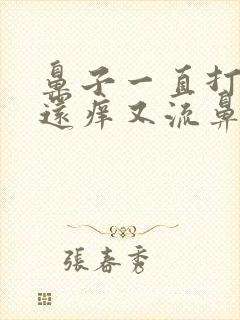 鼻子一直打
還痒又流鼻
張春秀